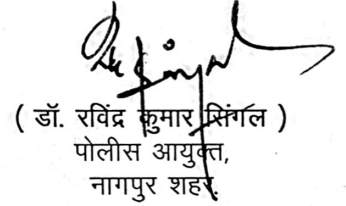 ( डॉ. रविंद्र कुमार सिंगल )
पोलीस आयुक्त,
नागपुर शहर.